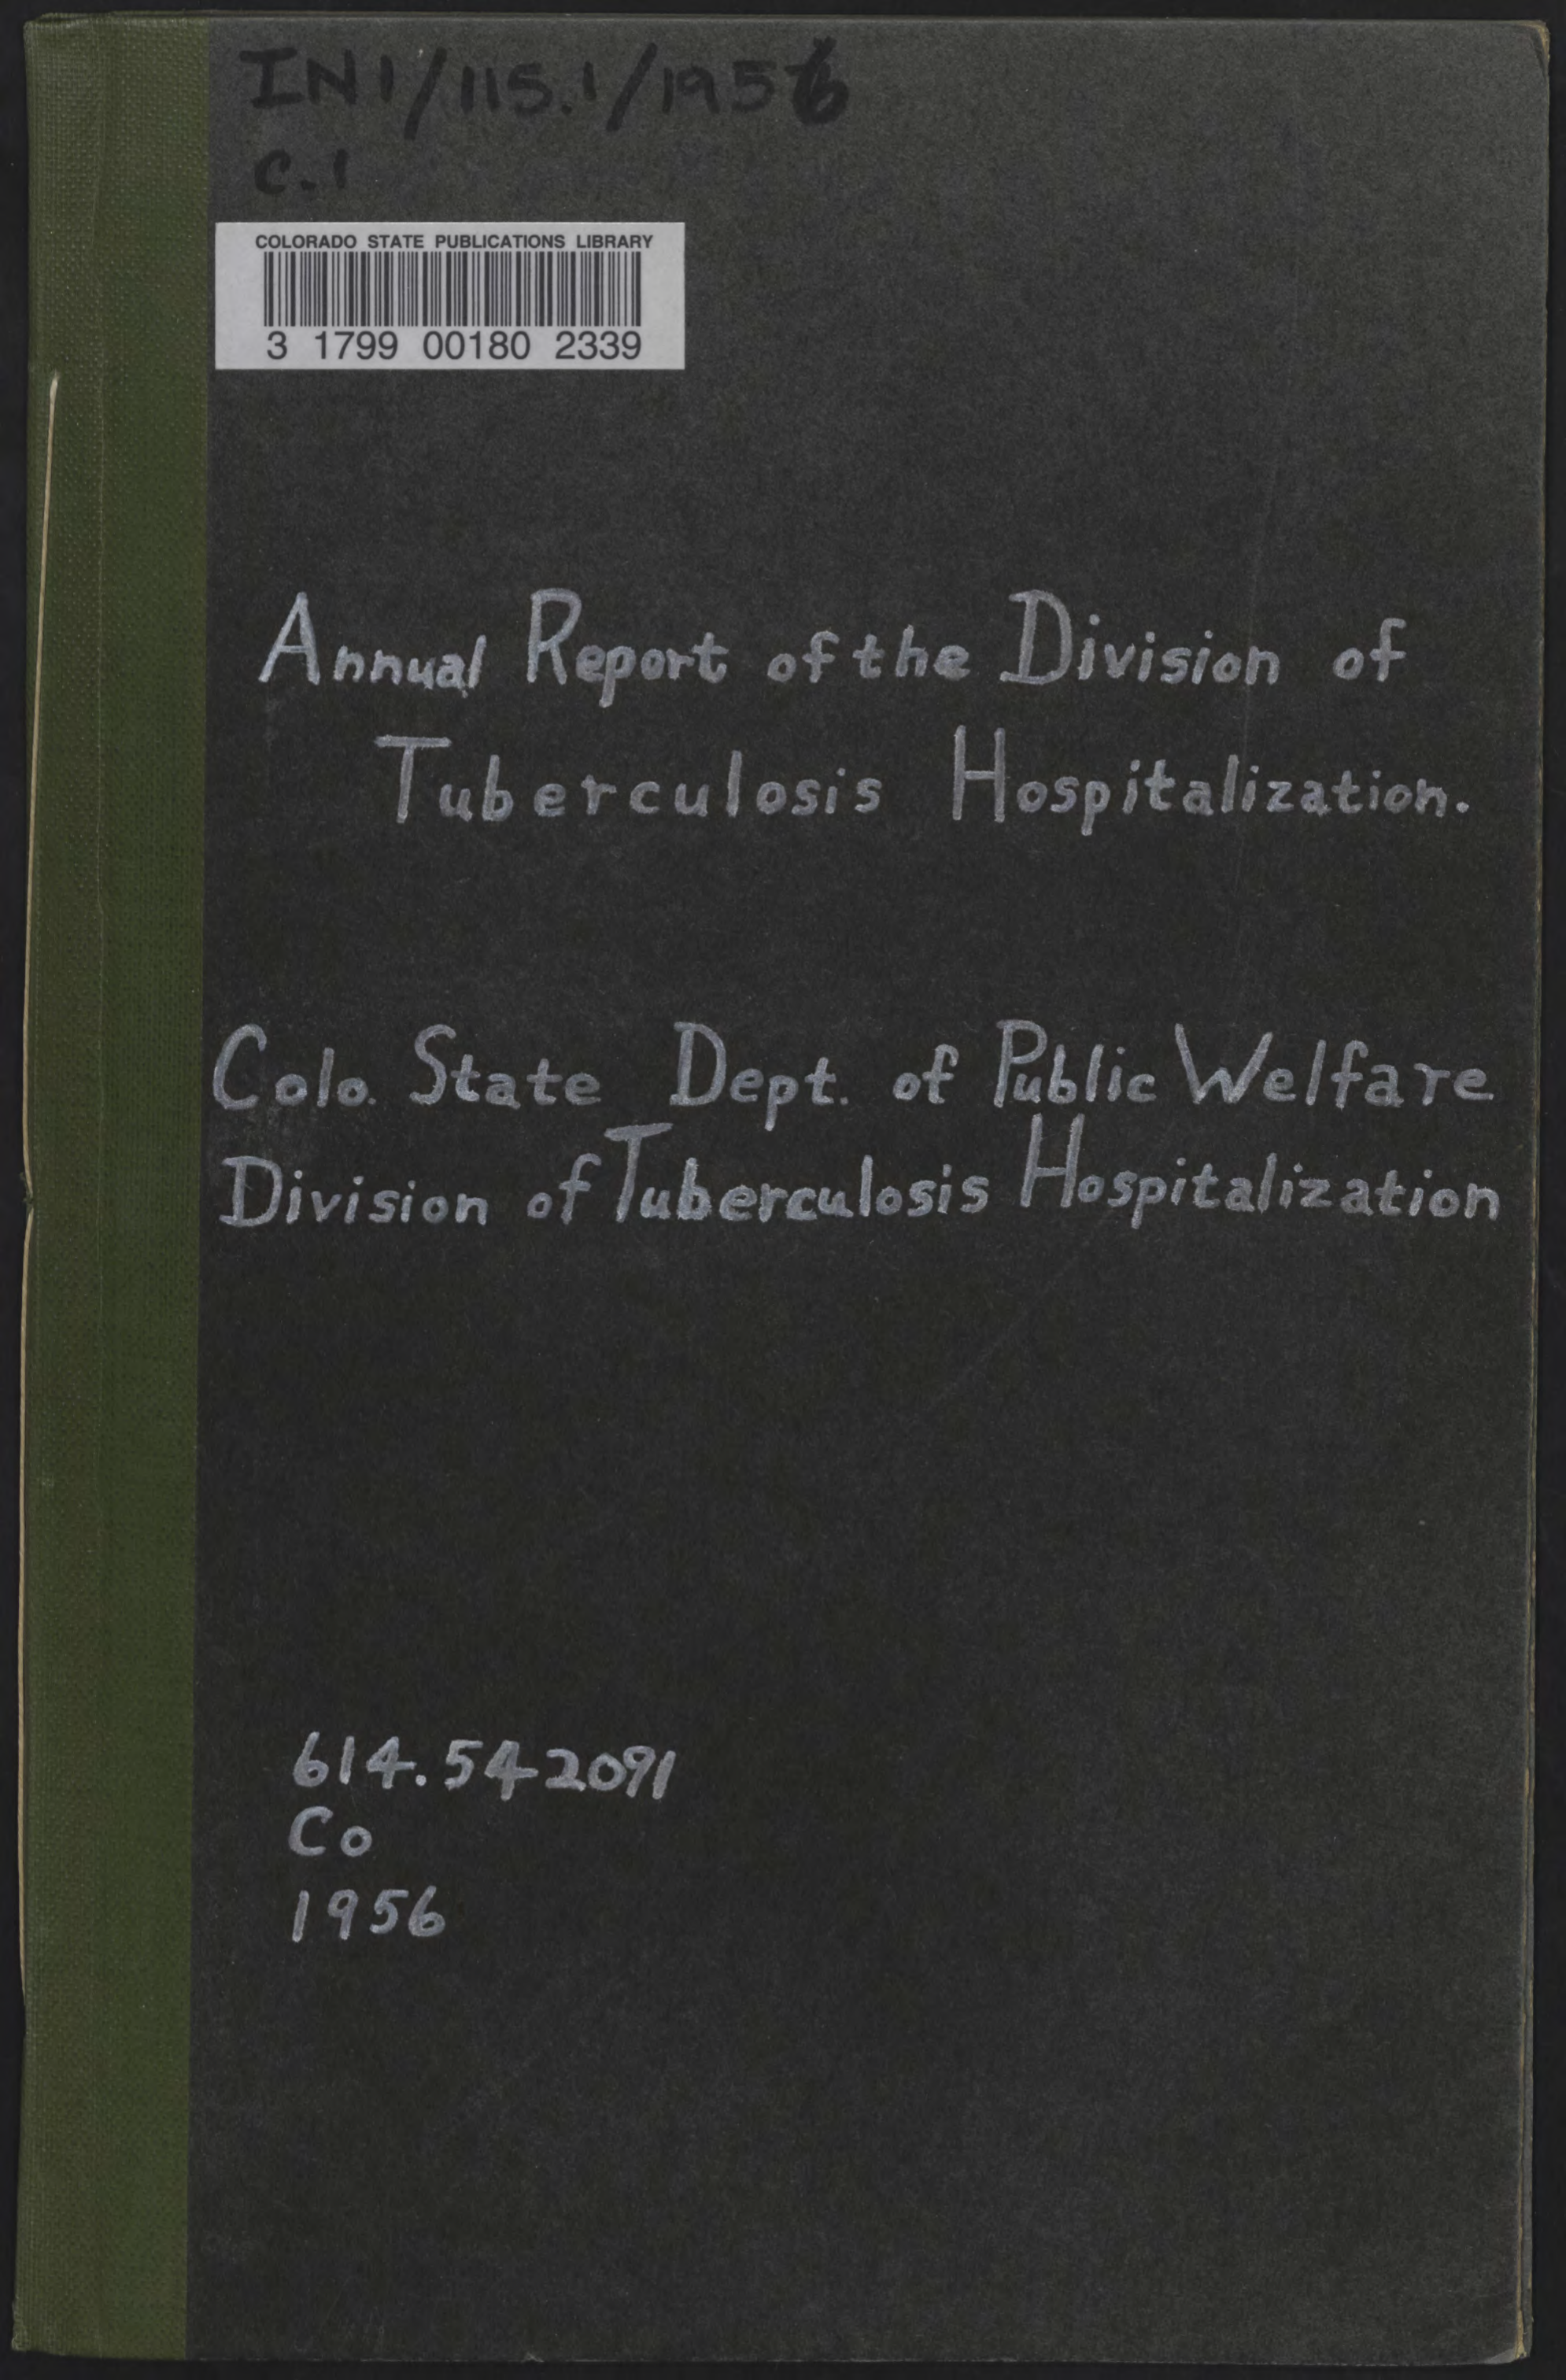 IN1/115.1/1956
C.1
COLORADO STATE PUBLICATIONS LIBRARY
3 1799 00180 2339
Annual Report of the Division of
Tuberculosis Hospitalization.
Colo. State Dept. of Public Welfare
Division of Tuberculosis Hospitalization
614.542091
Co
1956